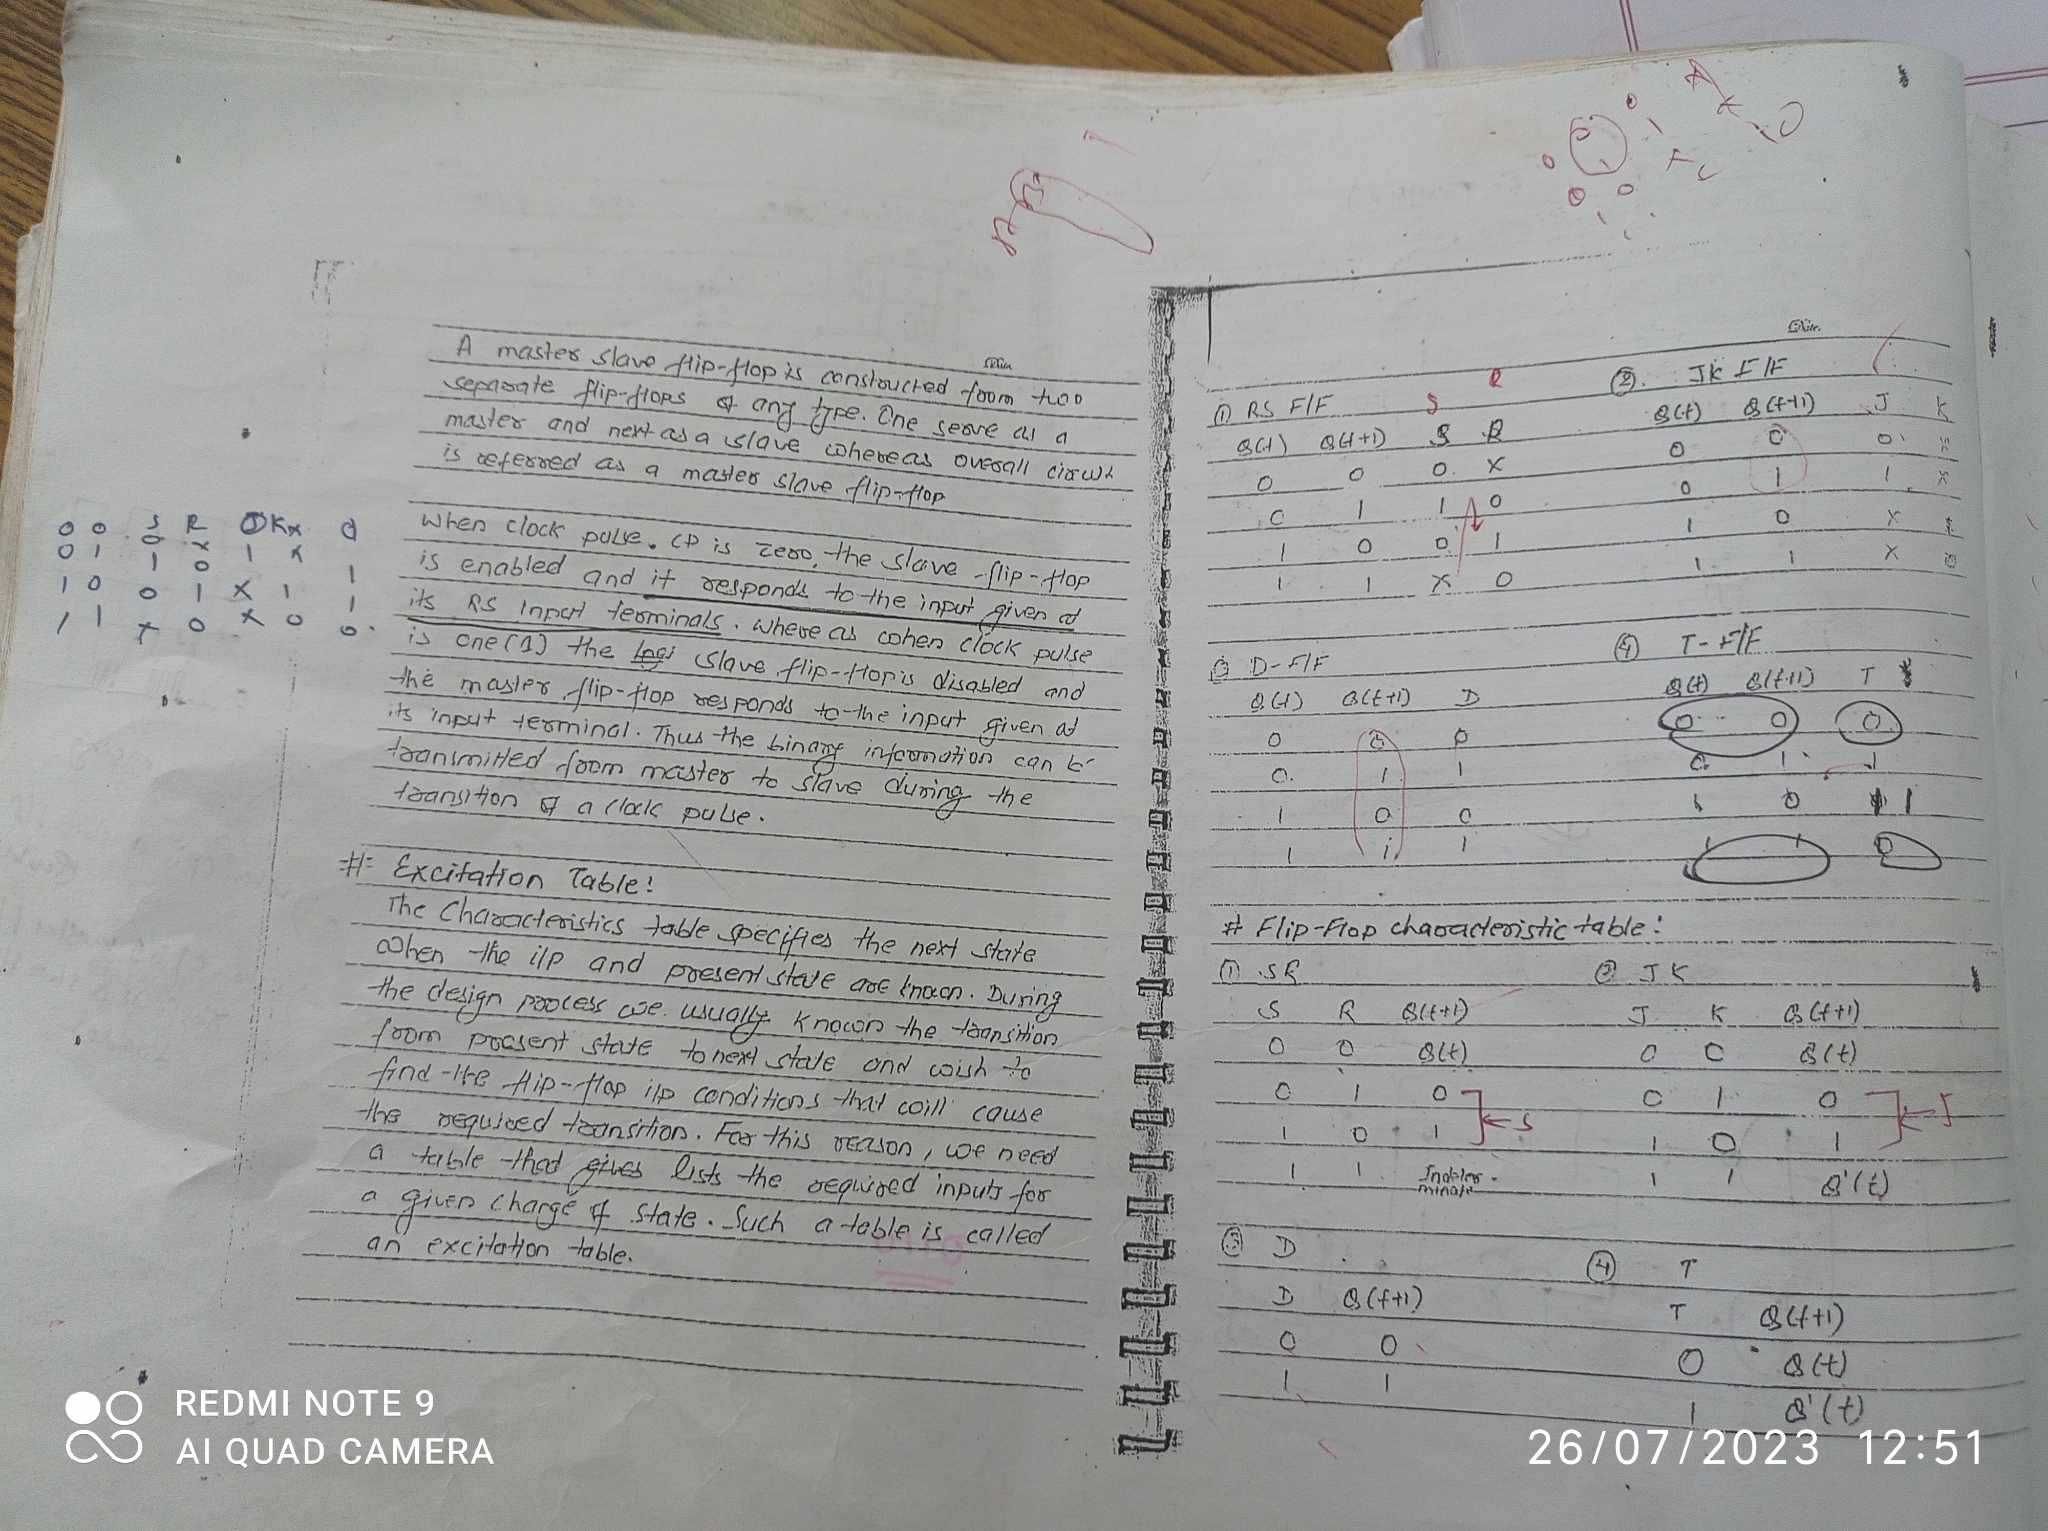 A master slave flip-flop is constructed from two
separate flip-flops of any type. One serve as a
master and next as a slave whereas overall circuit
is referred as a master slave flip-flop
When clock pulse. CP is zero, the slave flip-flop
is enabled and it responds to the input given at
its RS input terminals. Where as when clock pulse
is one (1) the slave flip-flop is disabled and
the master flip-flop responds to the input given at
its input terminal. Thus the binary information can be
transmitted from master to slave during the
transition of a clock pulse.
# Excitation Table:
The Characteristics table specifies the next state
when the i/p and present state are known. During
the design process we usually known the transition
from present state to next state and wish to
find the flip-flop i/p conditions that will cause
the required transition. For this reason, we need
a table that gives lists the required inputs for
a given change of state. Such a table is called
an excitation table.
0 0 S R J K x 0
0 1 1 0 1 x 1
1 0 0 1 x 1 1
1 1 x 0 x 0 0
Date.
① RS F/F
S R
Q(t) Q(t+1) S R
0 0 0 x
0 1 1 0
1 0 0 1
1 1 x 0
②. JK F/F
Q(t) Q(t+1) J K
0 0 0 x
0 1 1 x
1 0 x 1
1 1 x 0
③ D-F/F
Q(t) Q(t+1) D
0 0 0
0 1 1
1 0 0
1 1 1
④ T-F/F
Q(t) Q(t+1) T
0 0 0
0 1 1
1 0 1
1 1 0
# Flip-Flop characteristic table:
① SR
S R Q(t+1)
0 0 Q(t)
0 1 0
1 0 1 ← S
1 1 Indeter-
minate
② JK
J K Q(t+1)
0 0 Q(t)
0 1 0
1 0 1 ← J
1 1 Q'(t)
③ D
D Q(t+1)
0 0
1 1
④ T
T Q(t+1)
0 Q(t)
1 Q'(t)
REDMI NOTE 9
AI QUAD CAMERA
26/07/2023 12:51